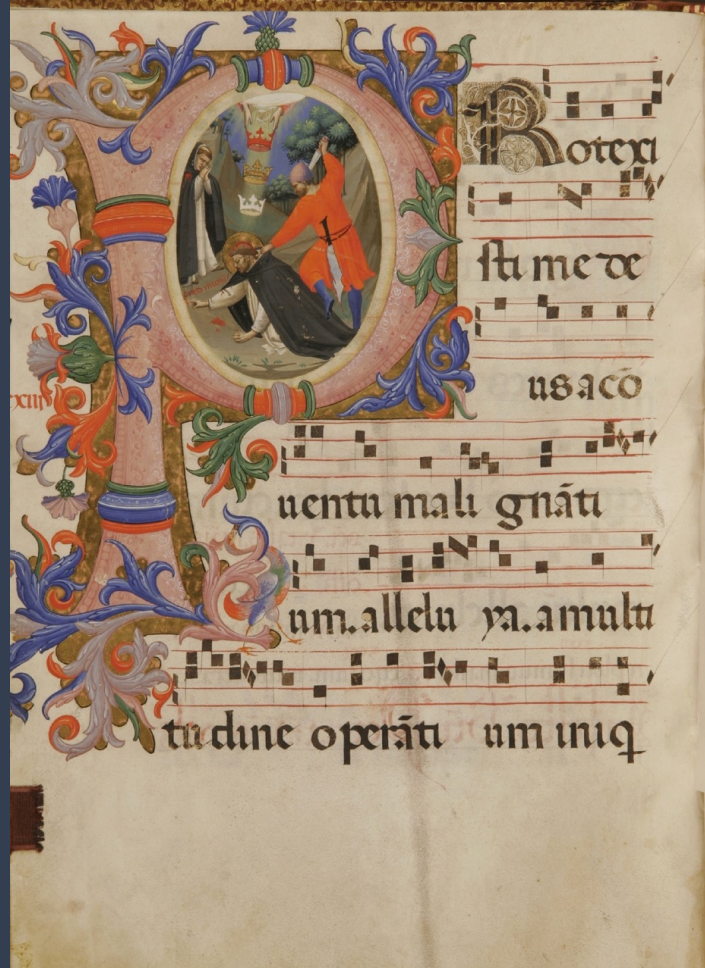 P Rotexi
sti me de
us a cō
uentu mali gnāti
um. allelu ya. a multi
tudine operāti um iniq